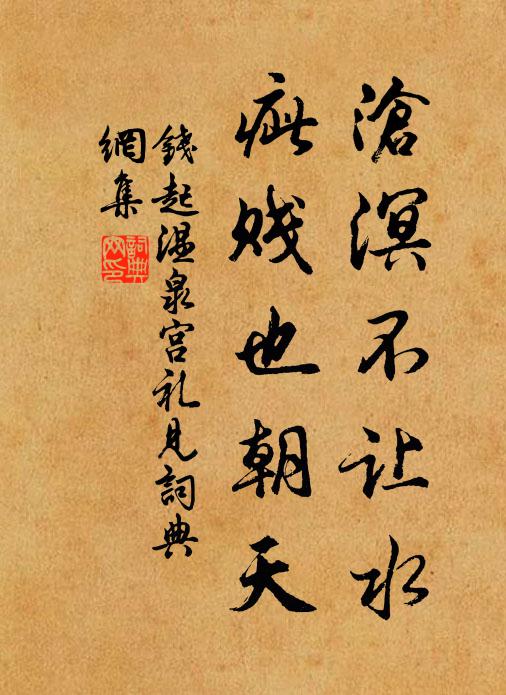 滄溟不让水
疵贱也朝天
錢起温泉宫礼見詞典
網集
詞典網印